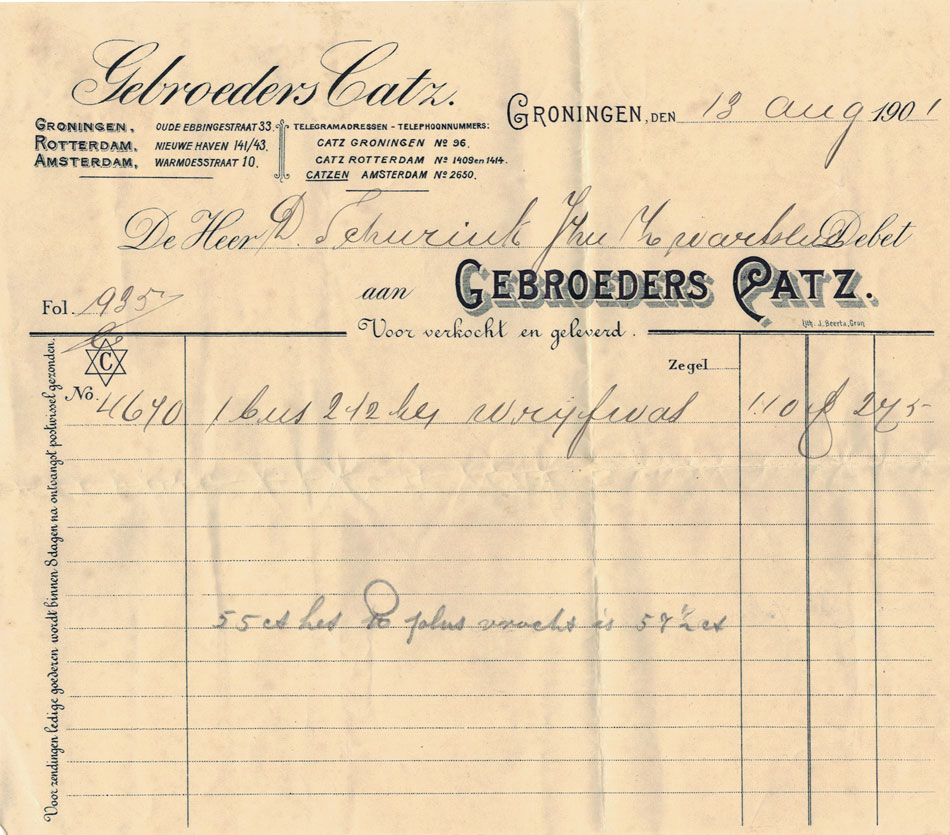 Gebroeders Catz.
GRONINGEN, OUDE EBBINGESTRAAT 33.
ROTTERDAM, NIEUWE HAVEN 141/43.
AMSTERDAM, WARMOESSTRAAT 10.
TELEGRAMADRESSEN - TELEPHOONNUMMERS:
CATZ GRONINGEN Nº 96.
CATZ ROTTERDAM Nº 1409 en 1414.
CATZEN AMSTERDAM Nº 2650.
GRONINGEN, DEN 13 aug 1901
De Heer D. Schurink Debet
Fol. 935
aan GEBROEDERS CATZ.
Lith. J. Beerta, Gron
Voor verkocht en geleverd.
C
Zegel
No. 4670 1 bus 2 1/2 kg wrijfwas 1.10 f 2 75
55 ct het plus vracht is 57 1/2 ct
Voor zendingen ledige goederen wordt binnen 8 dagen na ontvangst postwissel gezonden.